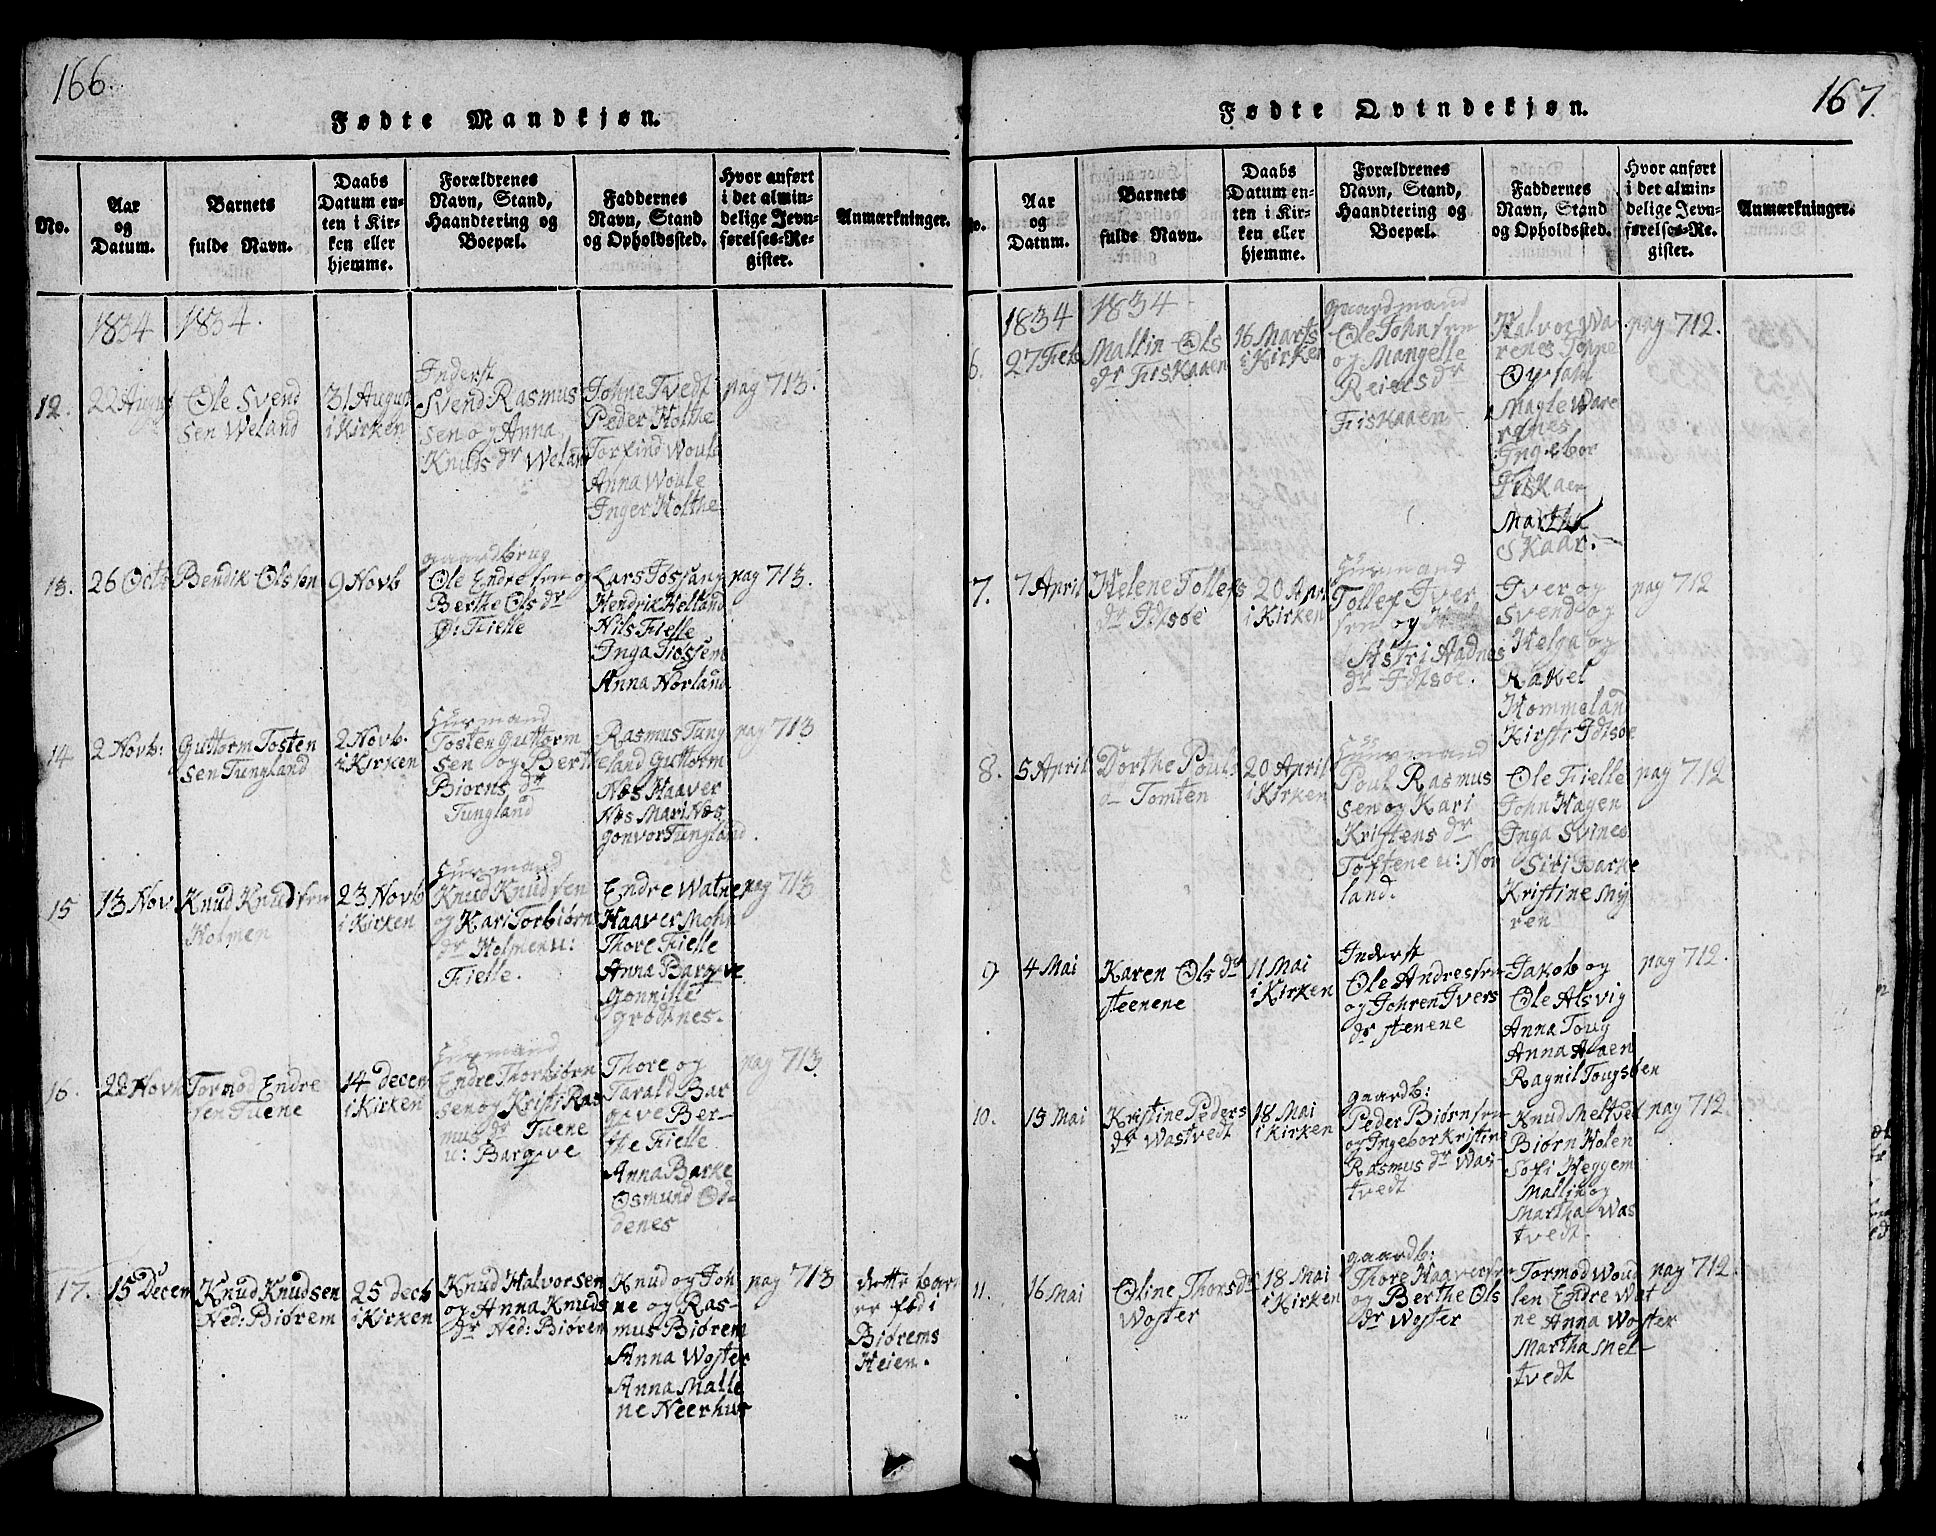 166.
Fødte Mandkjøn.
No.
Aar
og
Datum.
Barnets
fulde Navn.
Daabs
Datum en-
ten i Kir-
ken eller
hjemme.
Forældrenes
Navn, Stand,
Haandtering og
Boepæl.
Faddernes
Navn, Stand
og Opholdssted.
Hvor anført
i det almin-
delige Jevn-
førelses-Re-
gister.
Anmærkninger.
1834
1834.
12.
22 August
Ole Svend
sen Weland
31 August
i Kirken
Inderst
Svend Rasmus
sen og Anna
Knuds dr Weland
Johne Tvedt
Peder Holthe
Torfind Woule
Anna Woule
Inger Holthe
pag 713.
13.
26 Octb
Bendik Olssen
9 Novb
gaardbrug
Ole Endresen og
Berthe Ols dr
Fielle
Lars Fossang
Hendrik Helland
Nils Fielle
Inga Fiossem
Anna Norland
pag 713.
14
2 Novb:
Guttorm Tosten
sen Tungland
2 Novb.
i Kirken
Huusmand
Tosten Guttorm
sen og Berthe
Biørns dr
Tungland
Rasmus Tung
land Guttorm
Næs Haaver
Næs Mari Næs
Gonvor Tungland.
pag 713
15
13 Nov
Knud Knudsen
Holmen
23 Novb
i Kirken
Huusmand
Knud Knudsen
og Kari Torbiørns
dr Holmen u:
Fielle.
Endre Watne
Haaver Mohn
Thore Fielle
Anna Bargeve
Gonnille
Grødenes.
pag 713
16.
22 Novb
Tormod Endre
sen Tuene
14 decem
i Kirken
Huusmand
Endre Thorbiørn
sen og Kristi Ras
mus dr Tuene
u: Bargeve
Thore og
Tarald Bar
geve Ber-
the Fielle
Anna Barke
Osmund Od-
denes
pag 713
17.
15 Decem
Knud Knudsen
Ned: Biørem
25 decb
i Kirken
Knud Halvorsen
og Anna Knuds
dr Ned: Biørem
Knud og Joh
ne og Ras-
mus Biørem
Anna Woster
Anna Malle
ne Neerhus
pag 713
dette barn
er fød i
Biørems
Heien.
167.
Fødte Qvindekjøn.
No.
Aar
og
Datum.
Barnets
fulde Navn.
Daabs
Datum en-
ten i Kir-
ken eller
hjemme.
Forældrenes
Navn, Stand,
Haandtering og
Boepæl.
Faddernes
Navn, Stand
og Opholdssted.
Hvor anført
i det almin-
delige Jevn-
førelses-Re-
gister.
Anmærkninger.
1834
1834
6.
27 Feb
Mallin Ols
dr Fiskaaen
16 Marts
i Kirken
gaardmand
Ole Johnsen
og Mangelle
Reiers dr
Fiskaaen
Halvor Wa-
renes Johne
Magle Ware
renes
Ingebor
Fiskaen
Martha
Skaar.
pag 712.
7.
7 April
Helene Tollefs
dr Idsøe
20 Apri
i Kirken
Huusmand
Tollef Iver
sen og
Astri Aadnes
dr Idsøe.
Iver og
Svend og
Helga og
Rakel
Hommeland
Kirsti Idsøe
pag 712
8.
5 April
Dorthe Pouls
dr Tomten
20 April
i Kirken
Huusmand
Poul Rasmus
sen og Kari
Kristens dr
Toftene u: Nor
land.
Ole Fielle
John Hagen
Inga Svines
Siri Barke
Kristine Myr
ren
pag 712
9
4 Mai
Karen Ols dr
steenene
11 Mai
i Kirken
Inderst
Ole Andressen
og Johren Ivers
dr stenene
Jakob og
Ole Alsvig
Anna Toug
Anna Aaen
Ragnil Tougsbøen
pag 712.
10.
13 Mai
Kristine Peders
dr Wastvedt
18 Mai
i Kirken
gaardb:
Peder Biørnsen
og Ingebor Kristine
Rasmus dr Was-
tvedt
Knud Meltvet
Biørn Holen
Sofi Heggem
Mallin og
Martha Was
tvedt.
pag 712.
11.
16 Mai
Oline Thors dr
Woster
18 Mai
i Kirken
gaardb:
Thore Haaversen
og Berthe Ols
dr Woster
Tormod Woud
len Endre Wat
ne Anna Woster
Martha Mel-
tvedt
pag 712.